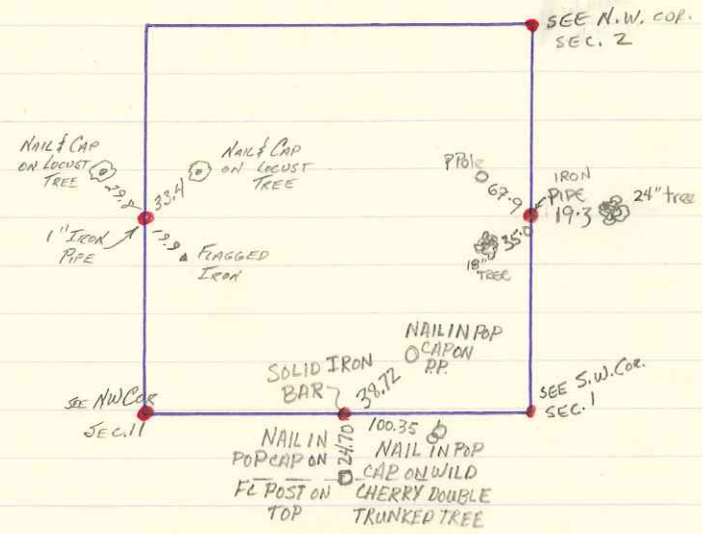 SEE N.W. COR.
SEC. 2
NAIL & CAP
ON LOCUST
TREE
29.8
33.4
NAIL & CAP
ON LOCUST
TREE
1" IRON
PIPE
19.9
FLAGGED
IRON
P Pole
67.9
IRON
PIPE
19.3
24" tree
35.0
18"
TREE
NAIL IN POP
CAP ON
P.P.
SOLID IRON
BAR
38.72
SEE NW COR
SEC. 11
SEE S.W. COR.
SEC. 1
100.35
24.70
NAIL IN
POP CAP ON
FE POST ON
TOP
NAIL IN POP
CAP ON WILD
CHERRY DOUBLE
TRUNKED TREE